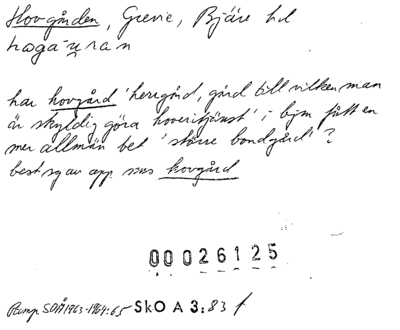 Hovgården, Grevie, Bjäre hd
hågauran
har hovgård 'herrgård, gård till vilken man
är skyldig göra hoveritjänst' i bym fått en
mer allmän bet 'större bondgård'?
best sg av app sms hovgård
00026125
SOÅ 1963-1964:65 SkO A 3:83 f